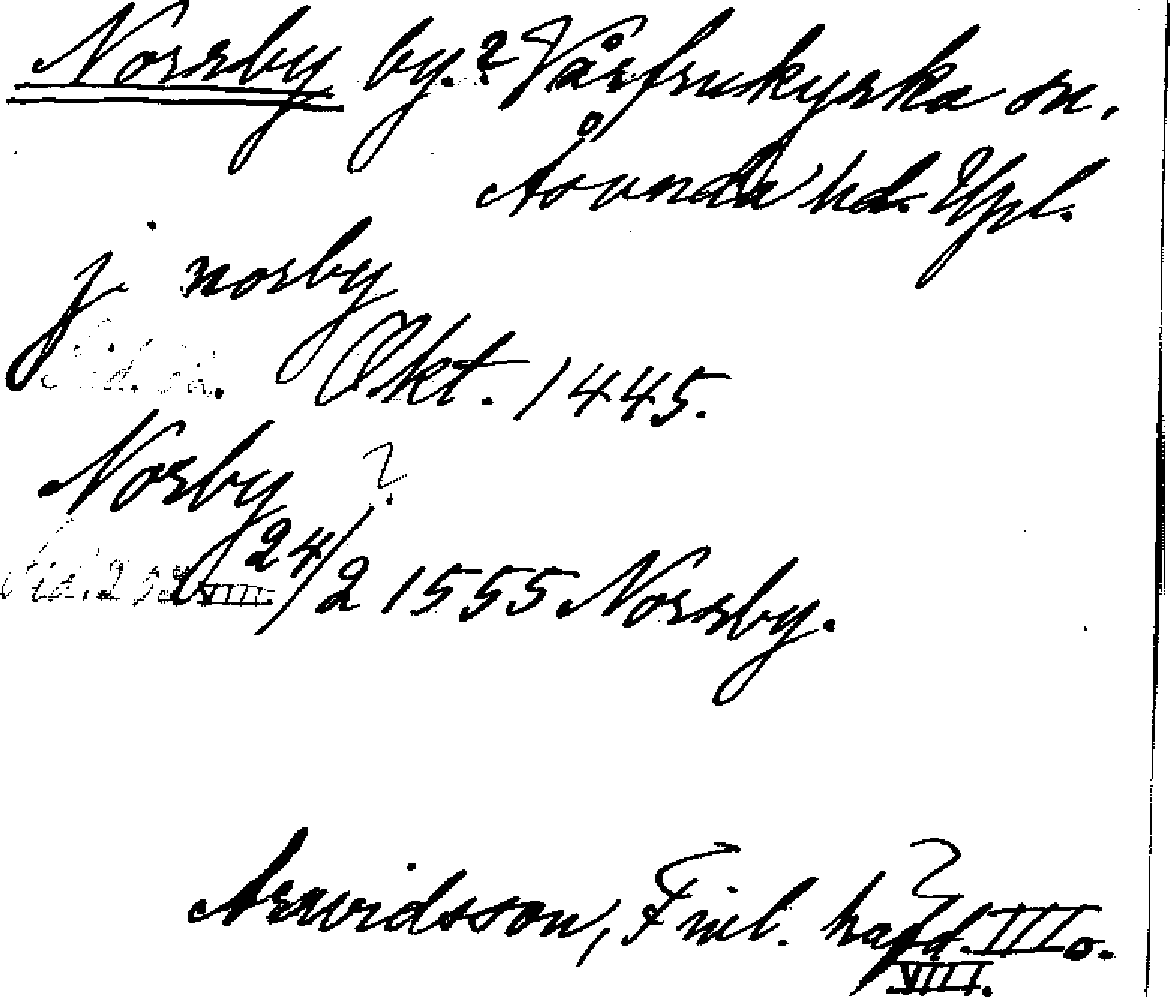 Norrby by.? Vårfrukyrka sn.
Åsunda hd. Upl.
j norby
Sid. Okt. 1445.
Norby ?
Sid. VIII 24/2 1555 Norrby.
Arwidsson, Finl. hafd. III o.
VIII.